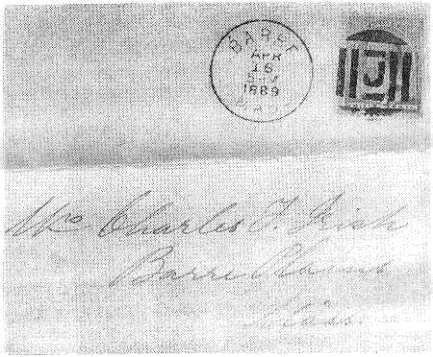 BARRE
APR
15
1889
MASS
J
Charles F. Frish
Barre Plains
Mass.